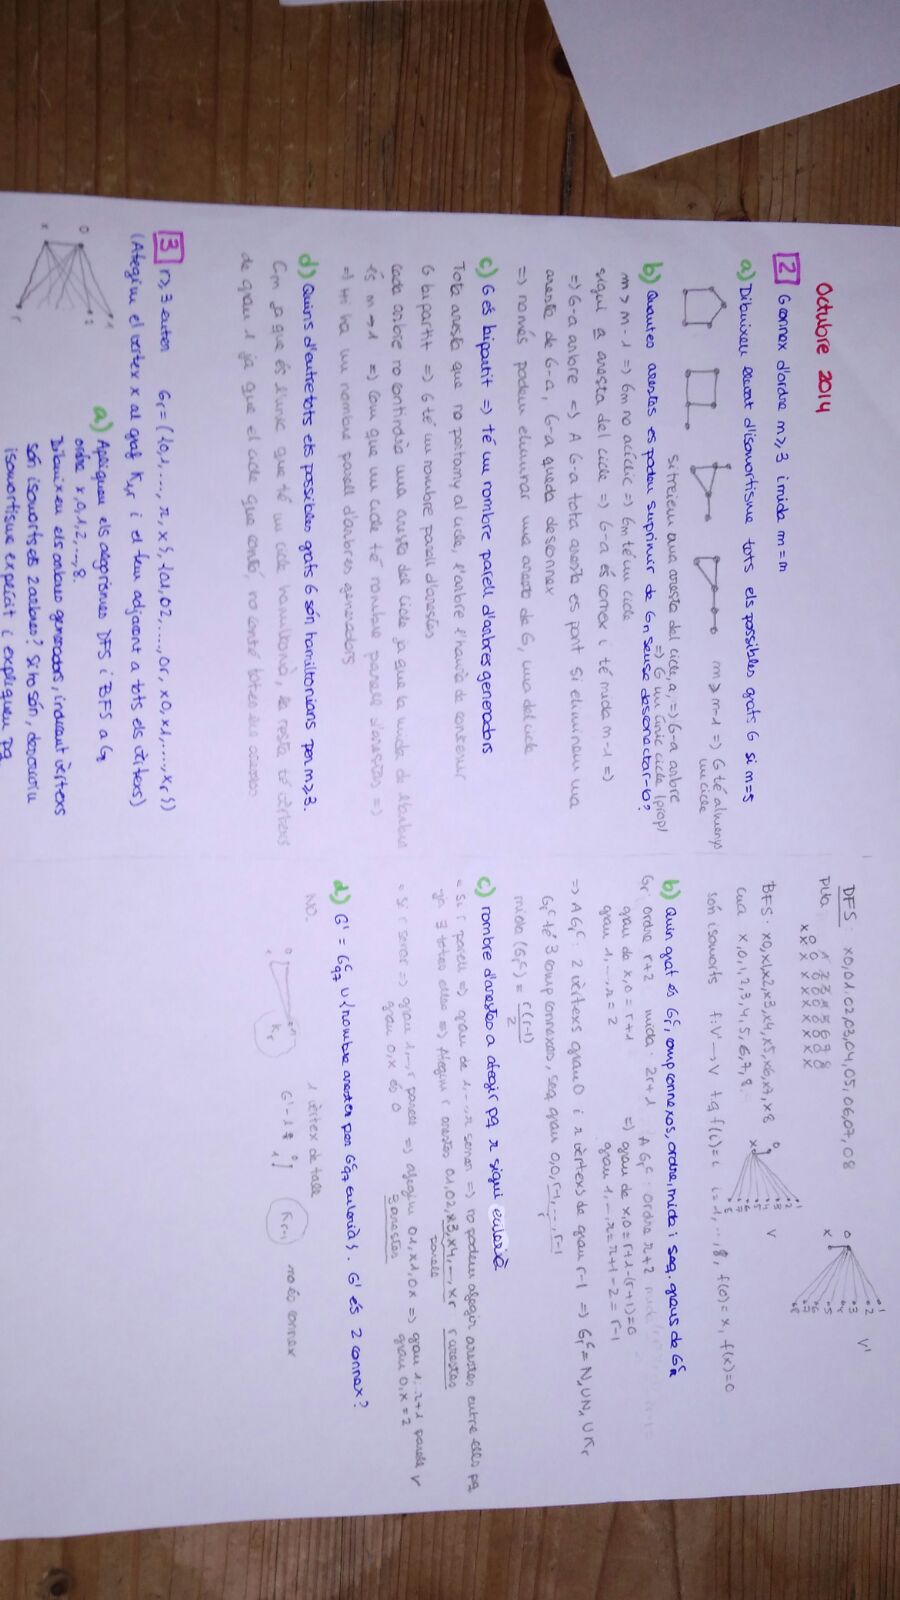 Octubre 2014
2 G connex d'ordre n≥3 i mida m=n
a) Dibuixeu llevat d'isomorfisme tots els possibles grafs G si n=5
m>n-1 => G té almenys un cicle
si treiem una aresta del cicle a, => G-a arbre
=> G un únic cicle (prop)
b) Quantes arestes es poden suprimir de G sense desconnectar-lo?
m>n-1 => G no acíclic => G té un cicle
sigui a aresta del cicle => G-a és connex i té mida n-1 =>
=> G-a arbre => A G-a tota aresta és pont si eliminem una
aresta de G-a, G-a queda desconnex
=> només podem eliminar una aresta de G, una del cicle
c) G és bipartit => té un nombre parell d'arbres generadors
Tota aresta que no pertany al cicle, l'arbre l'haurà de contenir
G bipartit => G té un nombre parell d'arestes
Cada arbre no contindrà una aresta del cicle ja que la mida de l'arbre
és n-1 => Com que un cicle té nombre parell d'arestes =>
=> Hi ha un nombre parell d'arbres generadors
d) Quins d'entre tots els possibles grafs G són hamiltonians per n≥3.
Cn ja que és l'únic que té un cicle hamiltonià, la resta té vèrtexs
de grau 1 ja que el cicle que conté, no conté totes les arestes
3 r≥3 enter Gr=({0,1,...,r,x},{01,02,...,0r,x0,x1,...,xr})
(Afegim el vèrtex x al graf K1,r i el fem adjacent a tots els vèrtexs)
0
x
1
2
r
a) Apliqueu els algorismes DFS i BFS a G8
ordre x,0,1,2,...,8.
Dibuixeu els arbres generadors, indicant vèrtexs
són isomorfs els 2 arbres? Si ho són, doneu un
isomorfisme explícit i expliqueu pq
DFS: x0,01,02,03,04,05,06,07,08
Pila:
1 2 3 4 5 6 7 8
0 0 0 0 0 0 0 0 0
x x x x x x x x x x
BFS: x0,x1,x2,x3,x4,x5,x6,x7,x8
cua x,0,1,2,3,4,5,6,7,8.
V
V'
són isomorfs f:V'→V tq f(i)=i i=1,...,8, f(0)=x, f(x)=0
b) Quin graf és Grᶜ, comp connexos, ordre, mida i seq. graus de Grᶜ
Gr ordre r+2 mida: 2r+1 A Grᶜ: ordre r+2
grau de x,0 = r+1 => grau de x,0=r+1-(r+1)=0
grau 1,...,r = 2 grau 1,...,r=r+1-2=r-1
=> A Grᶜ: 2 vèrtexs grau 0 i r vèrtexs de grau r-1 => Grᶜ=N1UN1UKr
Grᶜ té 3 comp connexos, seq grau 0,0,r-1,...,r-1
r
mida (Grᶜ) = r(r-1)/2
c) nombre d'arestes a afegir pq r sigui eulerià
• Si r parell => grau de 1,...,r senar => no podem afegir arestes entre ells pq
ja ∃ totes elles => Afegim r arestes 01,02,x3,x4,...,xr r arestes
parell
• si r senar => grau 1,...,r parell => afegim 01,x1,0x => grau 1,r+1 parell ✓
grau 0,x és 0 grau 0,x=2
3 arestes
d) G'=G97ᶜ U {nombre arestes per G97ᶜ eulerià}. G' és 2 connex?
NO.
0
x
1
Kr
1 vèrtex de tall
G'-1:
Kr-1
no és connex